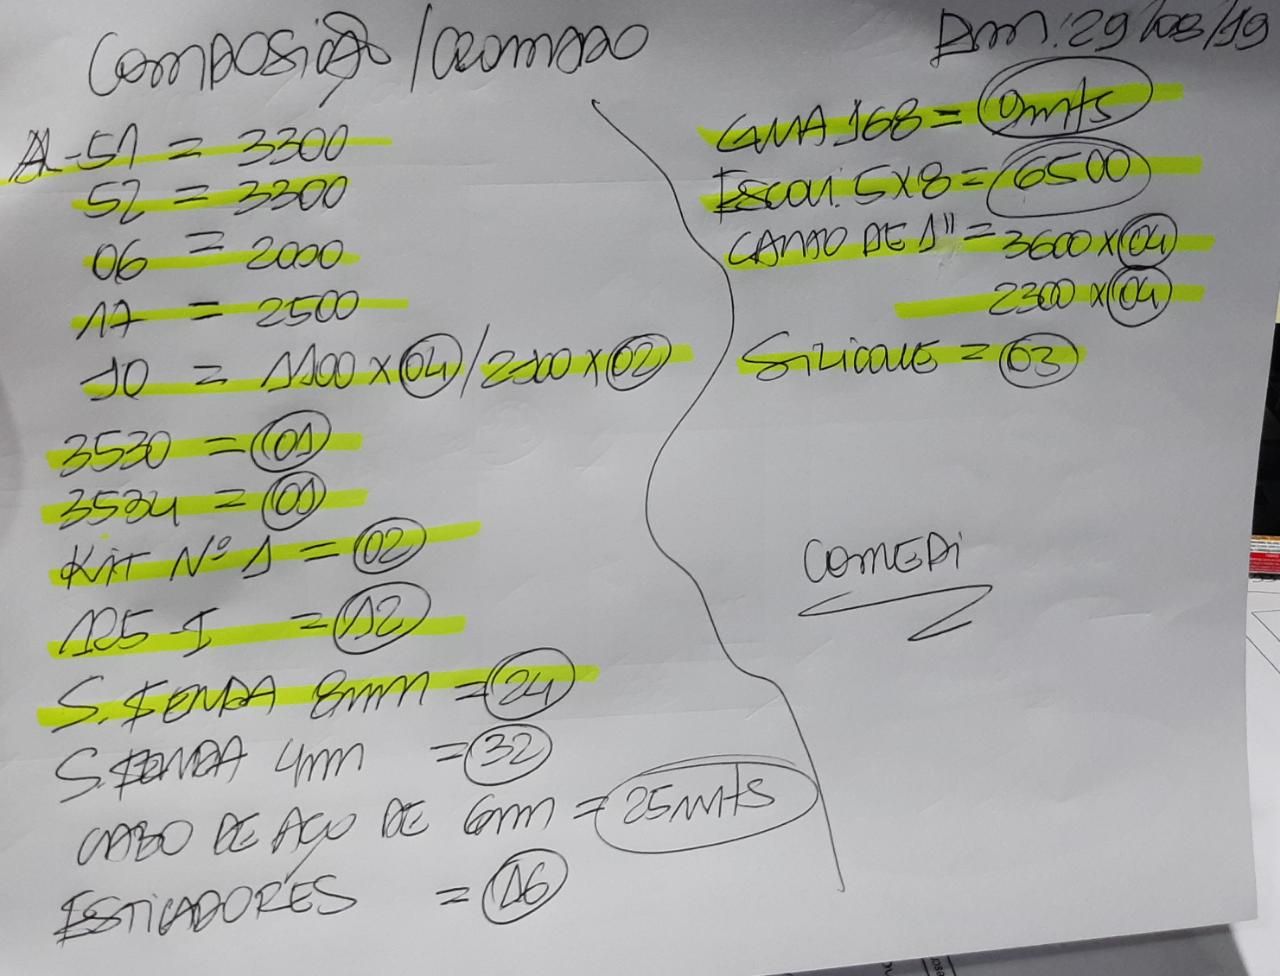 COMPOSIÇÃO / CROMADO
Dm: 29/08/19
AL-51 = 3300
52 = 3300
06 = 2000
17 = 2500
10 = 1100 x 04 / 2100 x 02
3530 = 01
3534 = 01
KIT Nº 1 = 02
125-I = 12
S. FENDA 8mm = 24
S. FENDA 4mm = 32
CABO DE AÇO DE 6mm = 25mts
ESTICADORES = 16
GUIA 168 = 9mts
ESCOVI. 5x8 = 6500
CANO DE 1" = 3600 x 04
2300 x 04
SILICONE = 03
COMEDI